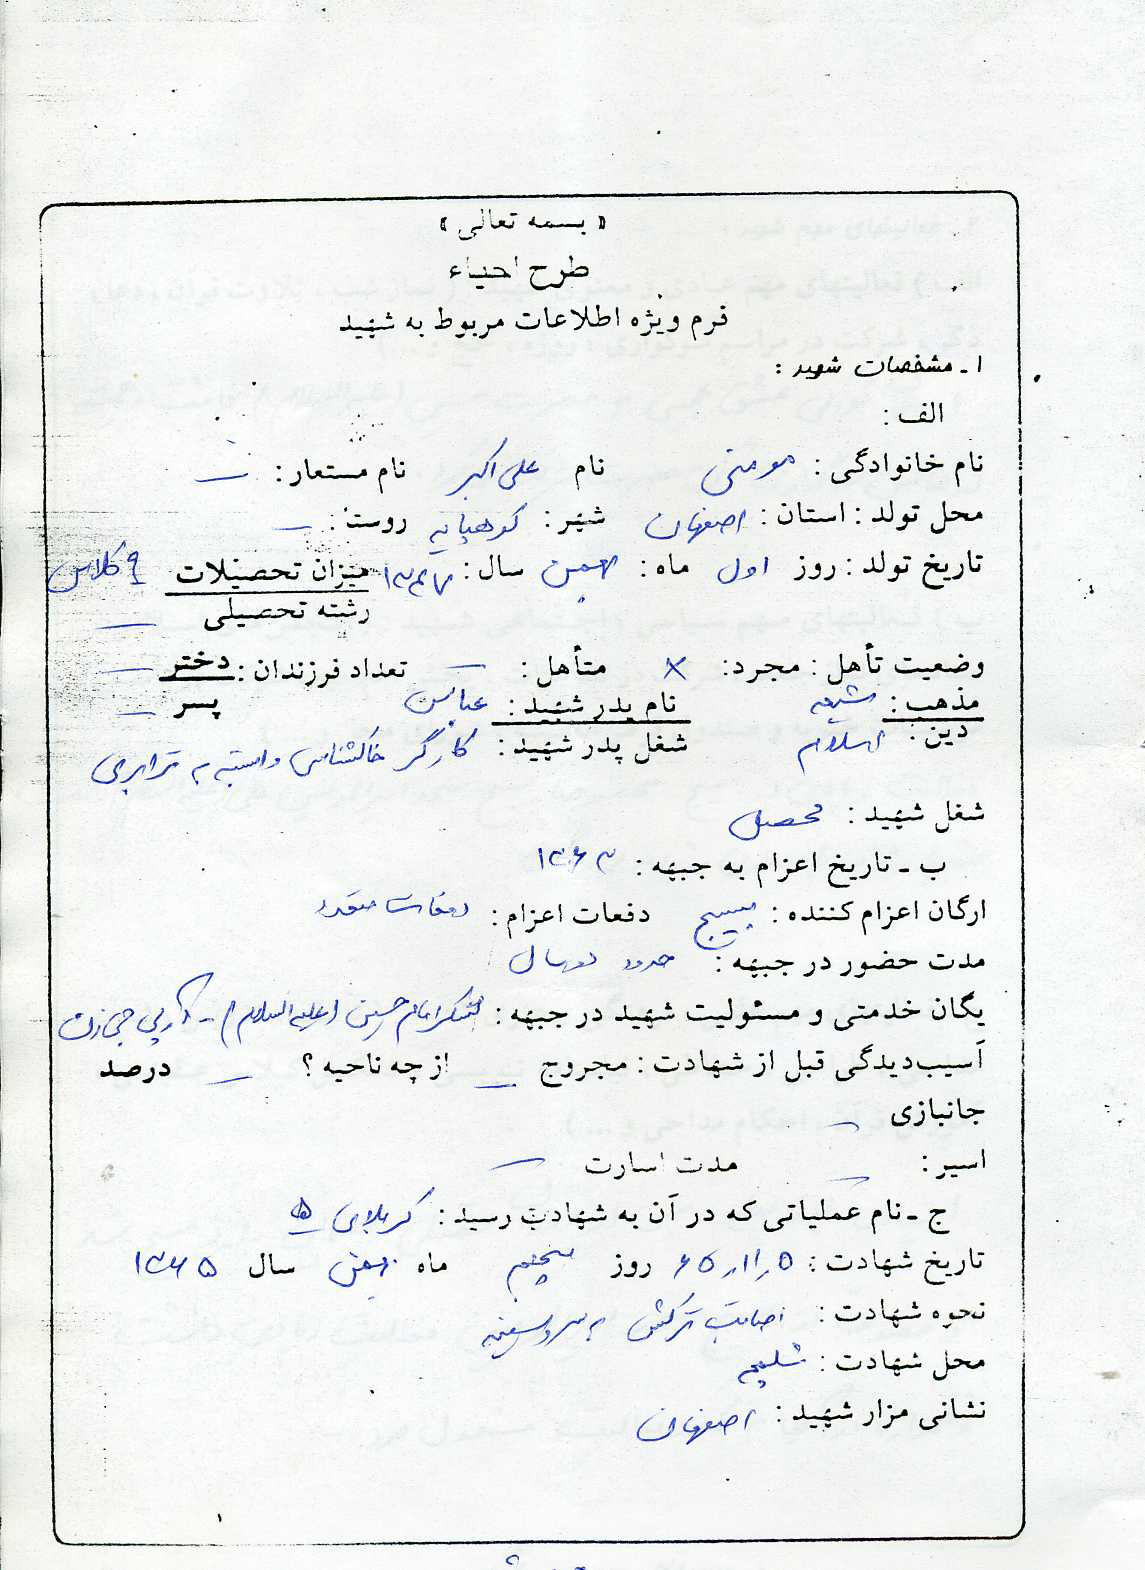 « بسمه تعالی »
طرح احیاء
فرم ویژه اطلاعات مربوط به شهید
۱ـ مشخصات شهید :
الف :
نام خانوادگی : مومنی نام علی اکبر نام مستعار : ـ
محل تولد : استان : اصفهان شهر : کوهپایه روستا : ـ
تاریخ تولد : روز اول ماه : بهمن سال : میزان تحصیلات ۹ کلاس
رشته تحصیلی ـ
وضعیت تأهل : مجرد : × متأهل : ـ تعداد فرزندان : دختر ـ
مذهب : شیعه نام پدر شهید : عباس پسر ـ
دین : اسلام شغل پدر شهید : کارگر خاکشناسی وابسته به ترابری
شغل شهید : محصل
ب ـ تاریخ اعزام به جبهه : ۱۳۶۳
ارگان اعزام کننده : بسیج دفعات اعزام : دفعات متعدد
مدت حضور در جبهه : حدود دو سال
یگان خدمتی و مسئولیت شهید در جبهه : لشکر امام حسین (علیه السلام) ـ آرپی جی زن
آسیب‌دیدگی قبل از شهادت : مجروح ـ از چه ناحیه ؟ ـ درصد
جانبازی ـ
اسیر : ـ مدت اسارت ـ
ج ـ نام عملیاتی که در آن به شهادت رسید : کربلای ۵
تاریخ شهادت : ۶۵٫۱۱٫۵ روز پنجم ماه بهمن سال ۱۳۶۵
نحوه شهادت : اصابت ترکش به سر و سینه
محل شهادت : شلمچه
نشانی مزار شهید : اصفهان